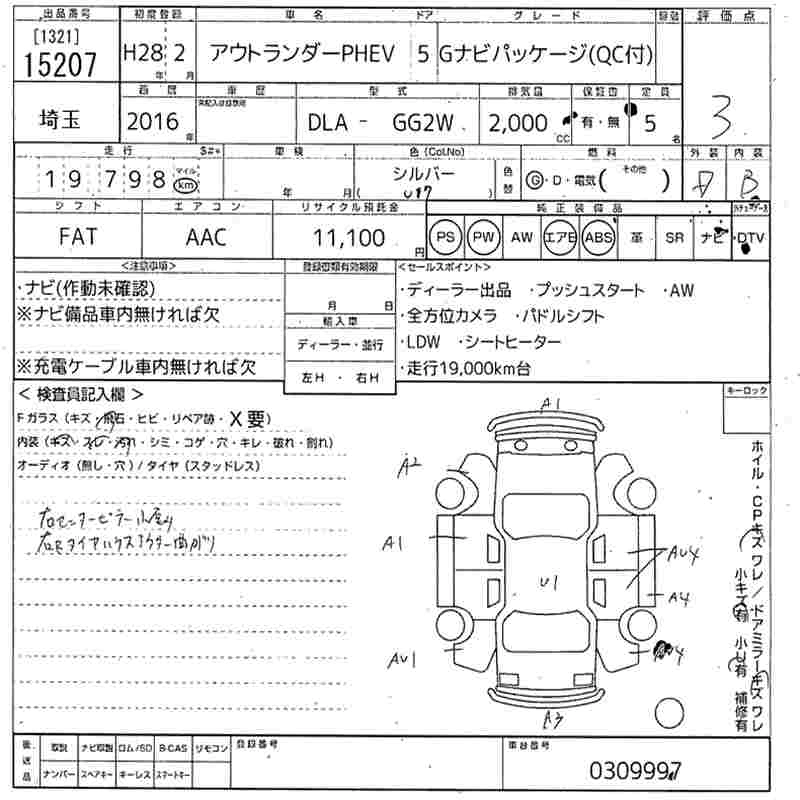 出品番号 初度登録 車名 ドア グレード 車歴 評価点
[1321]
15207
H28年 2月 アウトランダーPHEV 5 Gナビパッケージ(QC付)
3
西暦 車歴 型式 排気量 保証書 定員
埼玉 2016年 DLA - GG2W 2,000cc 有・無 5名
走行 車検 色(Col.No) 燃料 外装 内装
19798 マイル km 年 月 シルバー
( U17 ) 色替 G・D・電気( その他 )
A B
シフト エアコン リサイクル預託金 純正装備品
FAT AAC 11,100円 PS PW AW エアB ABS 革 SR ナビ DTV
<注意事項> 登録書類有効期限 <セールスポイント>
・ナビ(作動未確認) ・ディーラー出品 ・プッシュスタート ・AW
※ナビ備品車内無ければ欠 月 日 ・全方位カメラ ・パドルシフト
輸入車
ディーラー・並行 ・LDW ・シートヒーター
※充電ケーブル車内無ければ欠 左H ・ 右H ・走行19,000km台
<検査員記入欄> キーロック
Fガラス(キズ・飛石・ヒビ・リペア跡・X要)
内装(キズ・スレ・汚れ・シミ・コゲ・穴・キレ・破れ・割れ)
オーディオ(無し・穴)/タイヤ(スタッドレス)
右センターピラー小凹り
右Rタイヤハウスアウター曲がり
A1
A2
A1
AU4
U1
A4
AU1
4
A3
ホイル・CPキズワレ/ドアミラーキズワレ
小キズ有 小U有 補修有
後送品 取説 ナビ取説 ロム/SD B-CAS リモコン 登録番号 車台番号
ナンバー スペアキー キーレス スマートキー
0309997